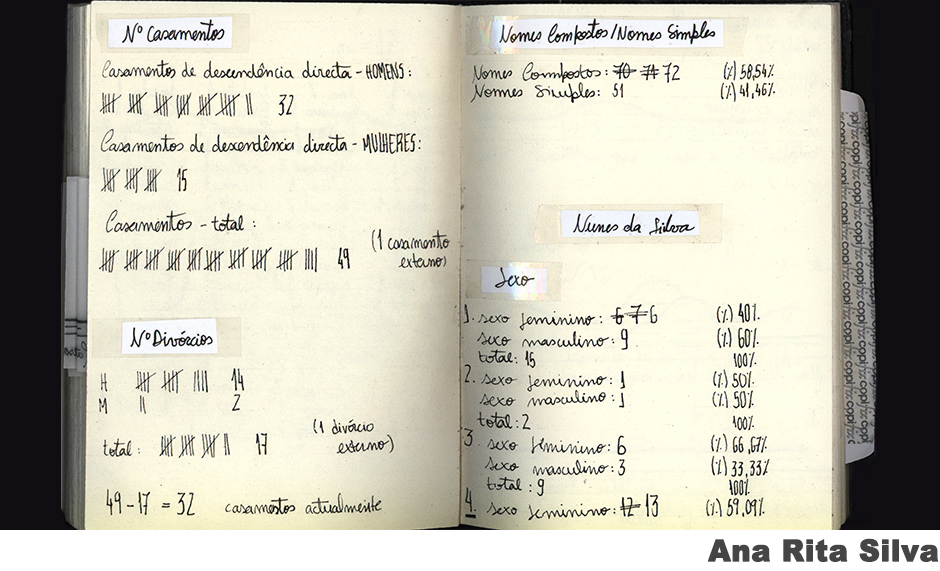 Nº Casamentos
Casamentos de descendência directa - HOMENS:
32
Casamentos de descendência directa - MULHERES:
15
Casamentos - total:
49 (1 casamento
externo)
Nº Divórcios
H 14
M 2
total: 17 (1 divórcio
externo)
49-17 = 32 casamentos actualmente
Nomes Compostos/Nomes Simples
Nomes Compostos: 70 71 72 (%) 58,54%
Nomes Simples: 51 (%) 41,46%
Nunes da Silva
Sexo
1. sexo feminino: 6 7 6 (%) 40%
sexo masculino: 9 (%) 60%
total: 15 100%
2. sexo feminino: 1 (%) 50%
sexo masculino: 1 (%) 50%
total: 2 100%
3. sexo feminino: 6 (%) 66,67%
sexo masculino: 3 (%) 33,33%
total: 9 100%
4. sexo feminino: 12 13 (%) 59,09%
Ana Rita Silva